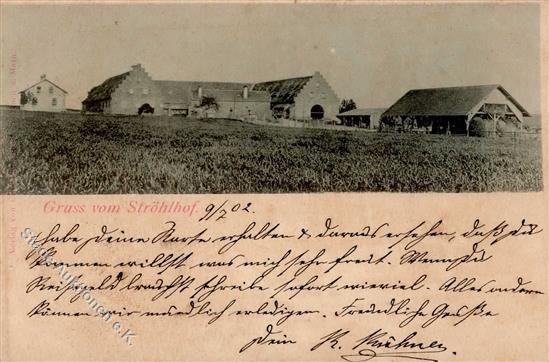 Gruss vom Ströhlhof. 9/7 02.
habe Deine Karte erhalten & daraus ersehen, daß du
kommen willst was mich sehr freut. Wenn du
Reisegeld brauchst schreibe sofort wieviel. Alles andere
können wir mündlich erledigen. Freundliche Grüße
Dein R. Kühner.